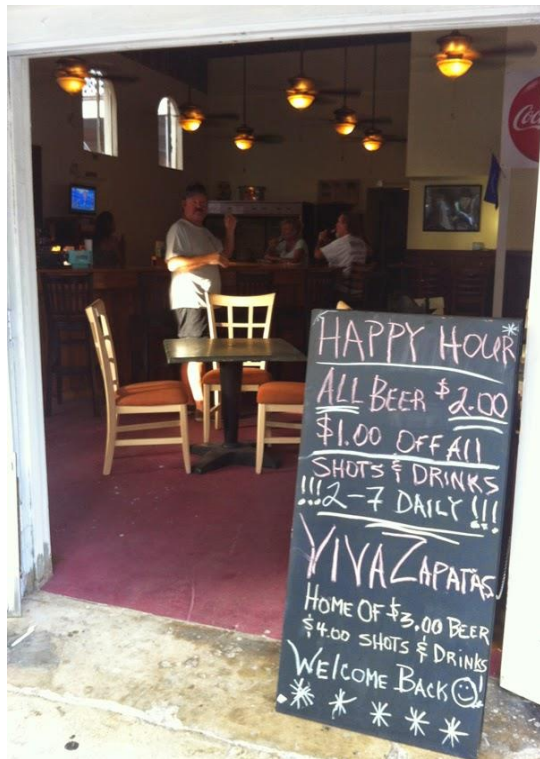 HAPPY HOUR
ALL BEER $2.00
$1.00 OFF All
SHOTS & DRINKS
!!!2-7 DAILY!!!
VIVA ZAPATAS
HOME OF $3.00 BEER
$4.00 SHOTS & DRINKS
WELCOME BACK!